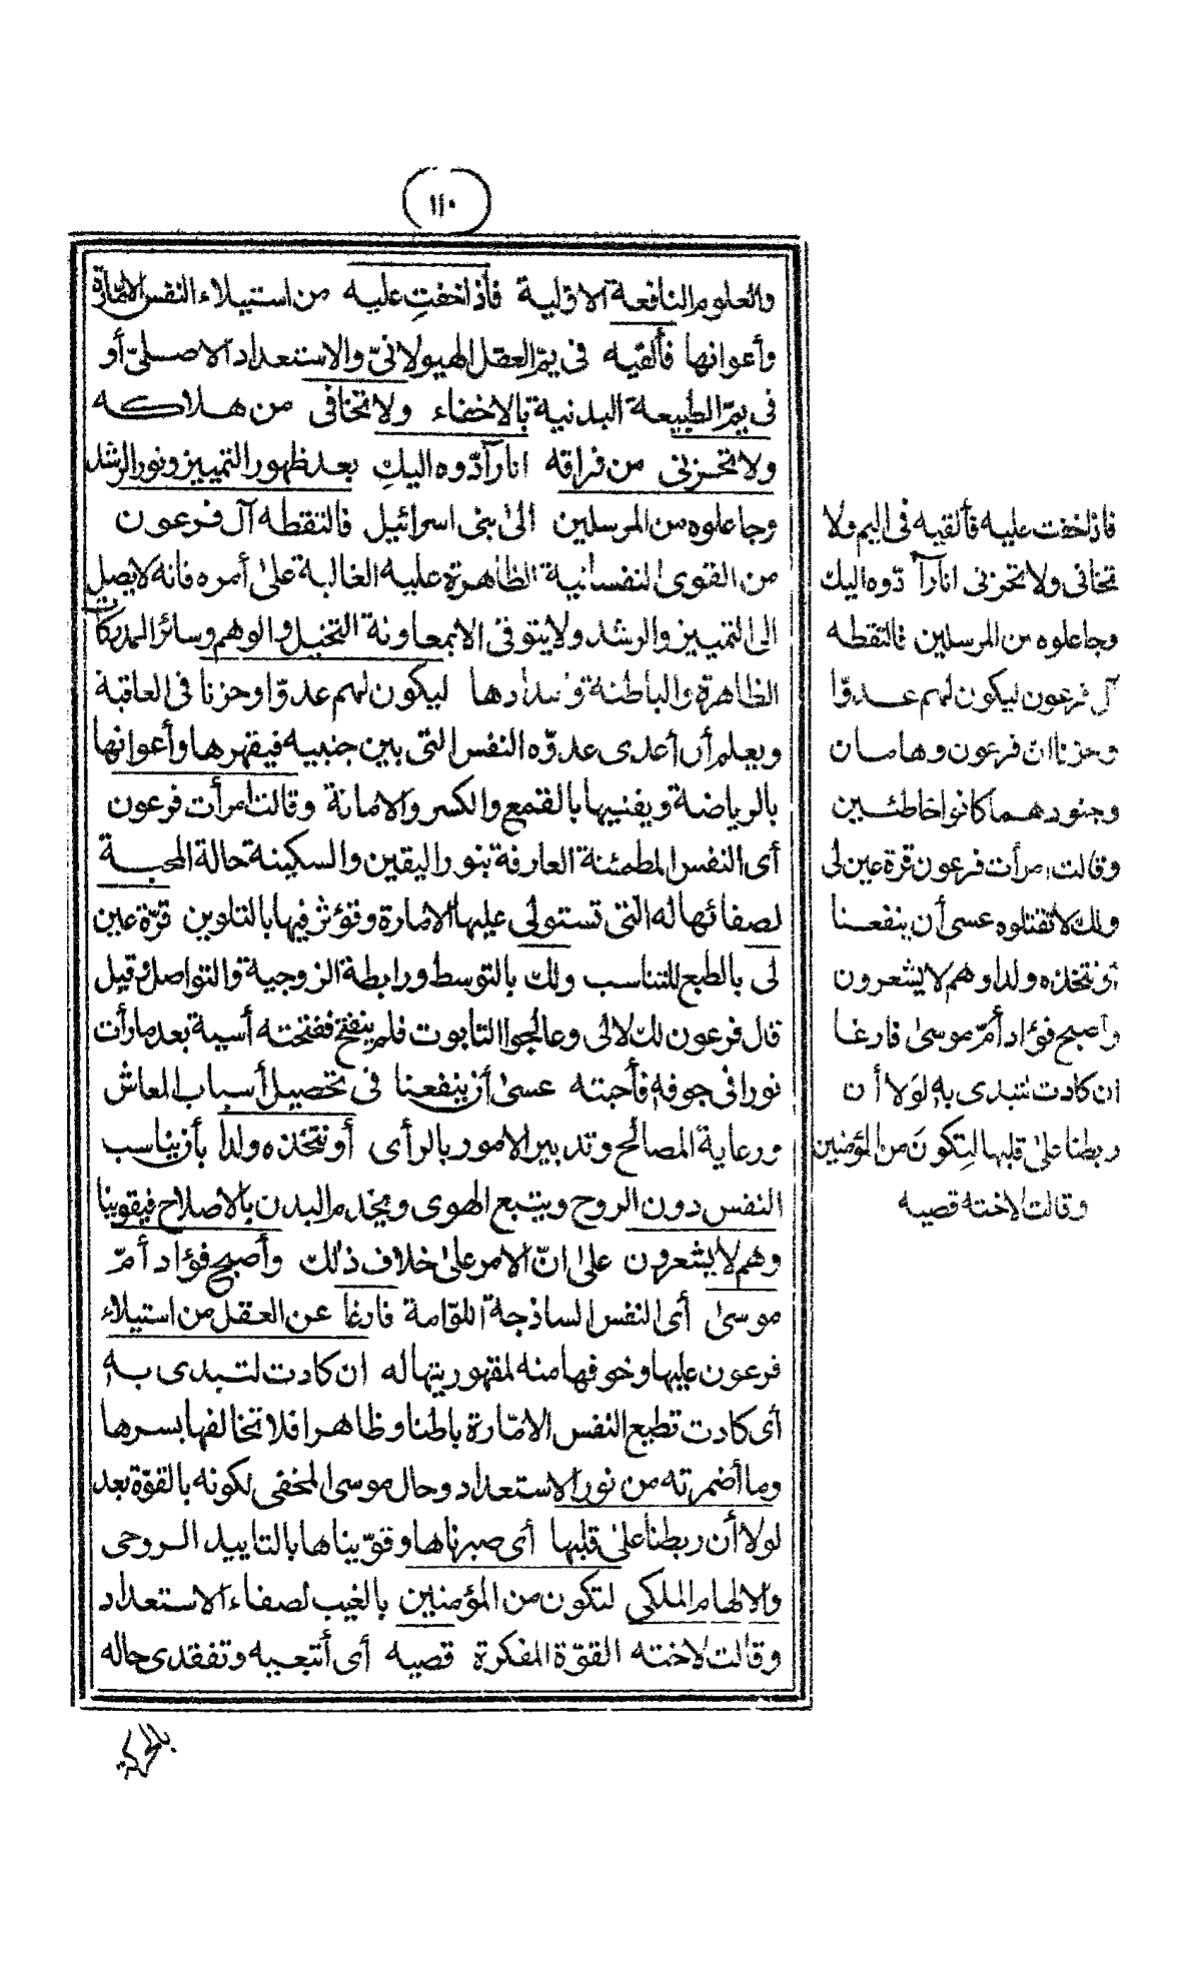 ١١٠
والعلوم النافعة الاولية فاذا خفت عليه من استيلاء النفس الامّارة
وأعوانها فألقيه فى يمّ العقل الهيولانىّ والاستعداد الاصلىّ أو
فى يمّ الطبيعة البدنية بالاخفاء ولا تخافى من هلاكه
ولا تحزنى من فراقه انا رآدّوه اليك بعد ظهور التمييز ونور الرشد
وجاعلوه من المرسلين الى بنى اسرائيل فالتقطه آل فرعون
من القوى النفسانية الظاهرة عليه الغالبة على أمره فانه لا يصل
الى التمييز والرشد ولا يتوقى الا بمعاونة التخيل والوهم وسائر المدركات
الظاهرة والباطنة وامدادها ليكون لهم عدوّا وحزنا فى العاقبة
ويعلم أن أعدى عدوّه النفس التى بين جنبيه فيقهرها وأعوانها
بالرياضة ويفنيها بالقمع والكسر والاماتة وقالت امرأت فرعون
أى النفس المطمئنة العارفة بنور اليقين والسكينة حالة المحبة
لصفائها له التى تستولى عليها الامارة وتؤثر فيها بالتلوين قرّة عين
لى بالطبع للتناسب ولك بالتوسط ورابطة الزوجية والتواصل وقيل
قال فرعون لك لا لى وعالجوا التابوت فلم ينفتح ففتحته أسية بعد ما رأت
نورا فى جوفه فأحبته عسى أن ينفعنا فى تحصيل أسباب المعاش
ورعاية المصالح وتدبير الامور بالرأى أو نتخذه ولدا بأن يناسب
النفس دون الروح ويتبع الهوى ويخدم البدن بالاصلاح فيقوينا
وهم لا يشعرون على انّ الامر على خلاف ذلك وأصبح فؤاد أمّ
موسى أى النفس الساذجة اللوّامة فارغا عن العقل من استيلاء
فرعون عليها وخوفها منه لمقهوريتها له ان كادت لتبدى به
أى كادت تطيع النفس الامّارة باطنا وظاهرا فلا تخالفها بسرها
وما أضمرته من نور الاستعداد وحال موسى المخفى لكونه بالقوّة بعد
لولا أن ربطنا على قلبها أى صبرناها وقوّيناها بالتاييد الروحى
والالهام الملكى لتكون من المؤمنين بالغيب لصفاء الاستعداد
وقالت لاخته القوّة المفكرة قصيه أى أتبعيه وتفقدى حاله
بالحركة
فاذا خفت عليه فألقيه فى اليم ولا
تخافى ولا تحزنى انا رآدّوه اليك
وجاعلوه من المرسلين فالتقطه
آل فرعون ليكون لهم عدوّا
وحزنا انّ فرعون وهامان
وجنودهما كانوا خاطئين
وقالت امرأت فرعون قرة عين لى
ولك لا تقتلوه عسى أن ينفعنا
أو نتخذه ولدا وهم لا يشعرون
وأصبح فؤاد أمّ موسى فارغا
ان كادت لتبدى به لولا أن
ربطنا على قلبها لتكون من المؤمنين
وقالت لاخته قصيه